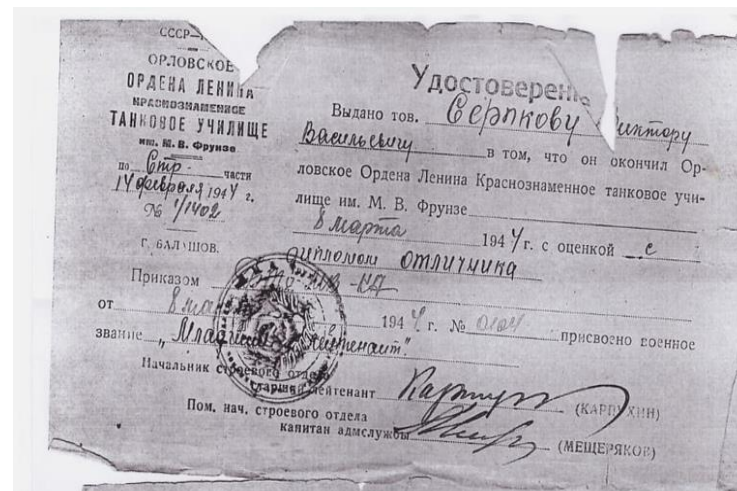 СССР
ОРЛОВСКОЕ
ОРДЕНА ЛЕНИНА
КРАСНОЗНАМЕННОЕ
ТАНКОВОЕ УЧИЛИЩЕ
им. М. В. Фрунзе
по Стр. части
14 февраля 1944 г.
№ 1/1402
г. БАЛАШОВ.
Удостоверение
Выдано тов. Серпкову Виктору
Васильевичу в том, что он окончил Ор-
ловское Ордена Ленина Краснознаменное танковое учи-
лище им. М. В. Фрунзе
8 марта 1944 г. с оценкой с
дипломом отличника
Приказом
от 8 1944 г. № 0104 присвоено военное
звание „Младший лейтенант".
Начальник строевого отдела
старший лейтенант (КАРПУХИН)
Пом. нач. строевого отдела
капитан адмслужбы (МЕЩЕРЯКОВ)